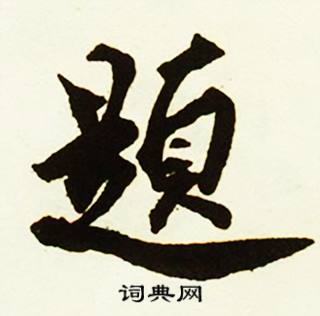 題
词典网